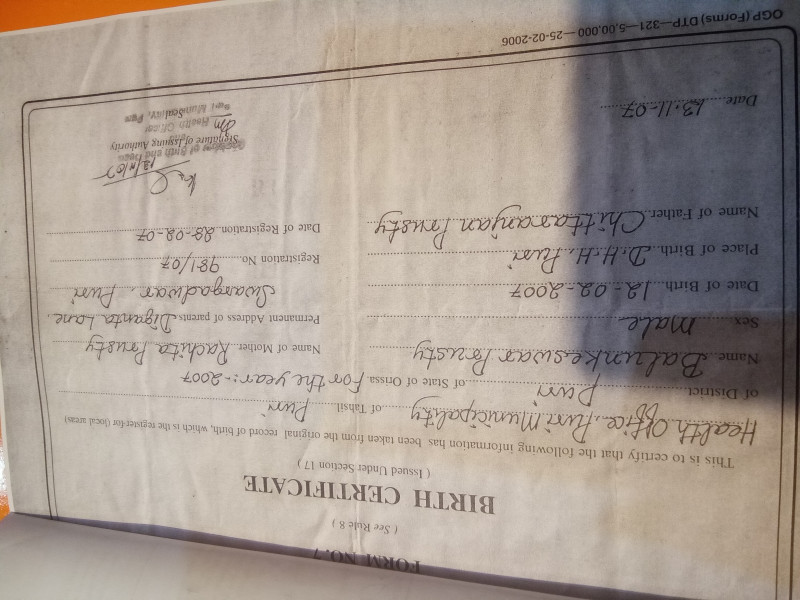 FORM NO. 7
( See Rule 8 )
BIRTH CERTIFICATE
( Issued Under Section 17 )
This is to certify that the following information has been taken from the original record of birth, which is the register for (local areas)
Health Office, Puri Municipality of Tahsil Puri
of District Puri of State of Orissa For the year:- 2007
Name Balunkeswar Prusty
Name of Mother Rachita Prusty
Sex Male
Permanent Address of parents Diganta Lane
Swargadwar, Puri
Date of Birth 12-02-2007
Registration No. 981/07
Place of Birth D.H.H, Puri
Date of Registration 28-02-07
Name of Father Chittaranjan Prusty
Signature of Issuing Authority
Date 13.11.07
OGP (Forms) DTP—321—5,00,000—25-02-2006